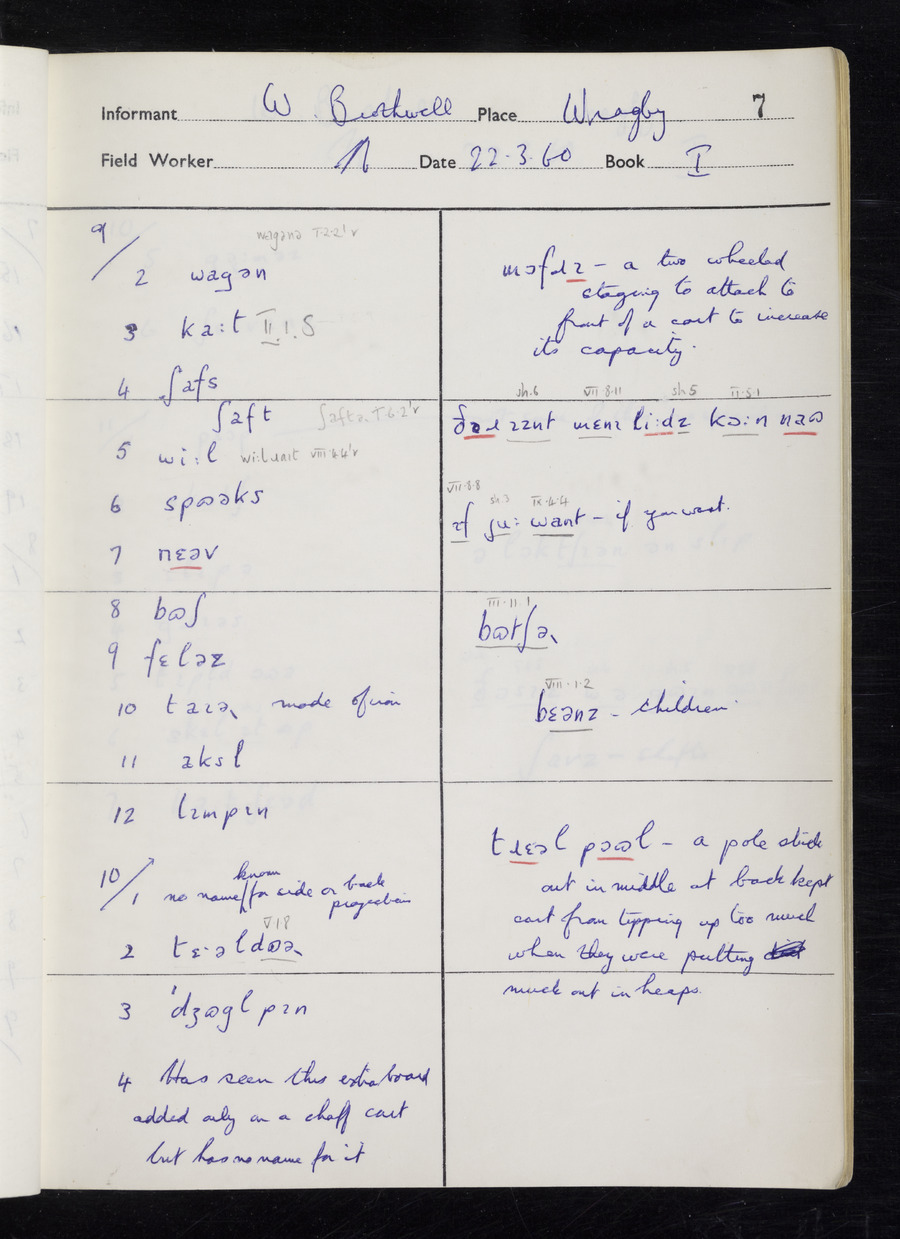 Informant W. Brothwell Place Wragby 7
Field Worker Date 22.3.60 Book I
9/
2 wagən
3 ka:t II.1.5
4 ʃafs
ʃaft ʃaftə
5 wi:l
6 spʊəks
7 nɛəv
8 bʊʃ
9 fɛləz
10 taɪə made of iron
11 aksl
12 lɪmpɪn
10/
1 no name known for side or back
projection
V 18
2 tɛ·əldʊə
3 'dʒʊglpɪn
4 Has seen this extra board
added only on a chaff cart
but has no name for it
mɔfɹɪ – a two wheeled
staging to attach to
front of a cart to increase
its capacity.
sh.6 VII.8.11 sh 5 II.5.1
ðəɹ ɪznt mɛnɪ li:dz kɔ:n naʊ
VII.8.8 sh.3 IX.4.4
ɪf ju: want – if you want.
III.11.1
bʊtʃə
VIII.1.2
bɛənz – children.
tɹɛəl pɔʊl – a pole stuck
out in middle at back kept
cart from tipping up too much
when they were pulling
muck out in heaps.